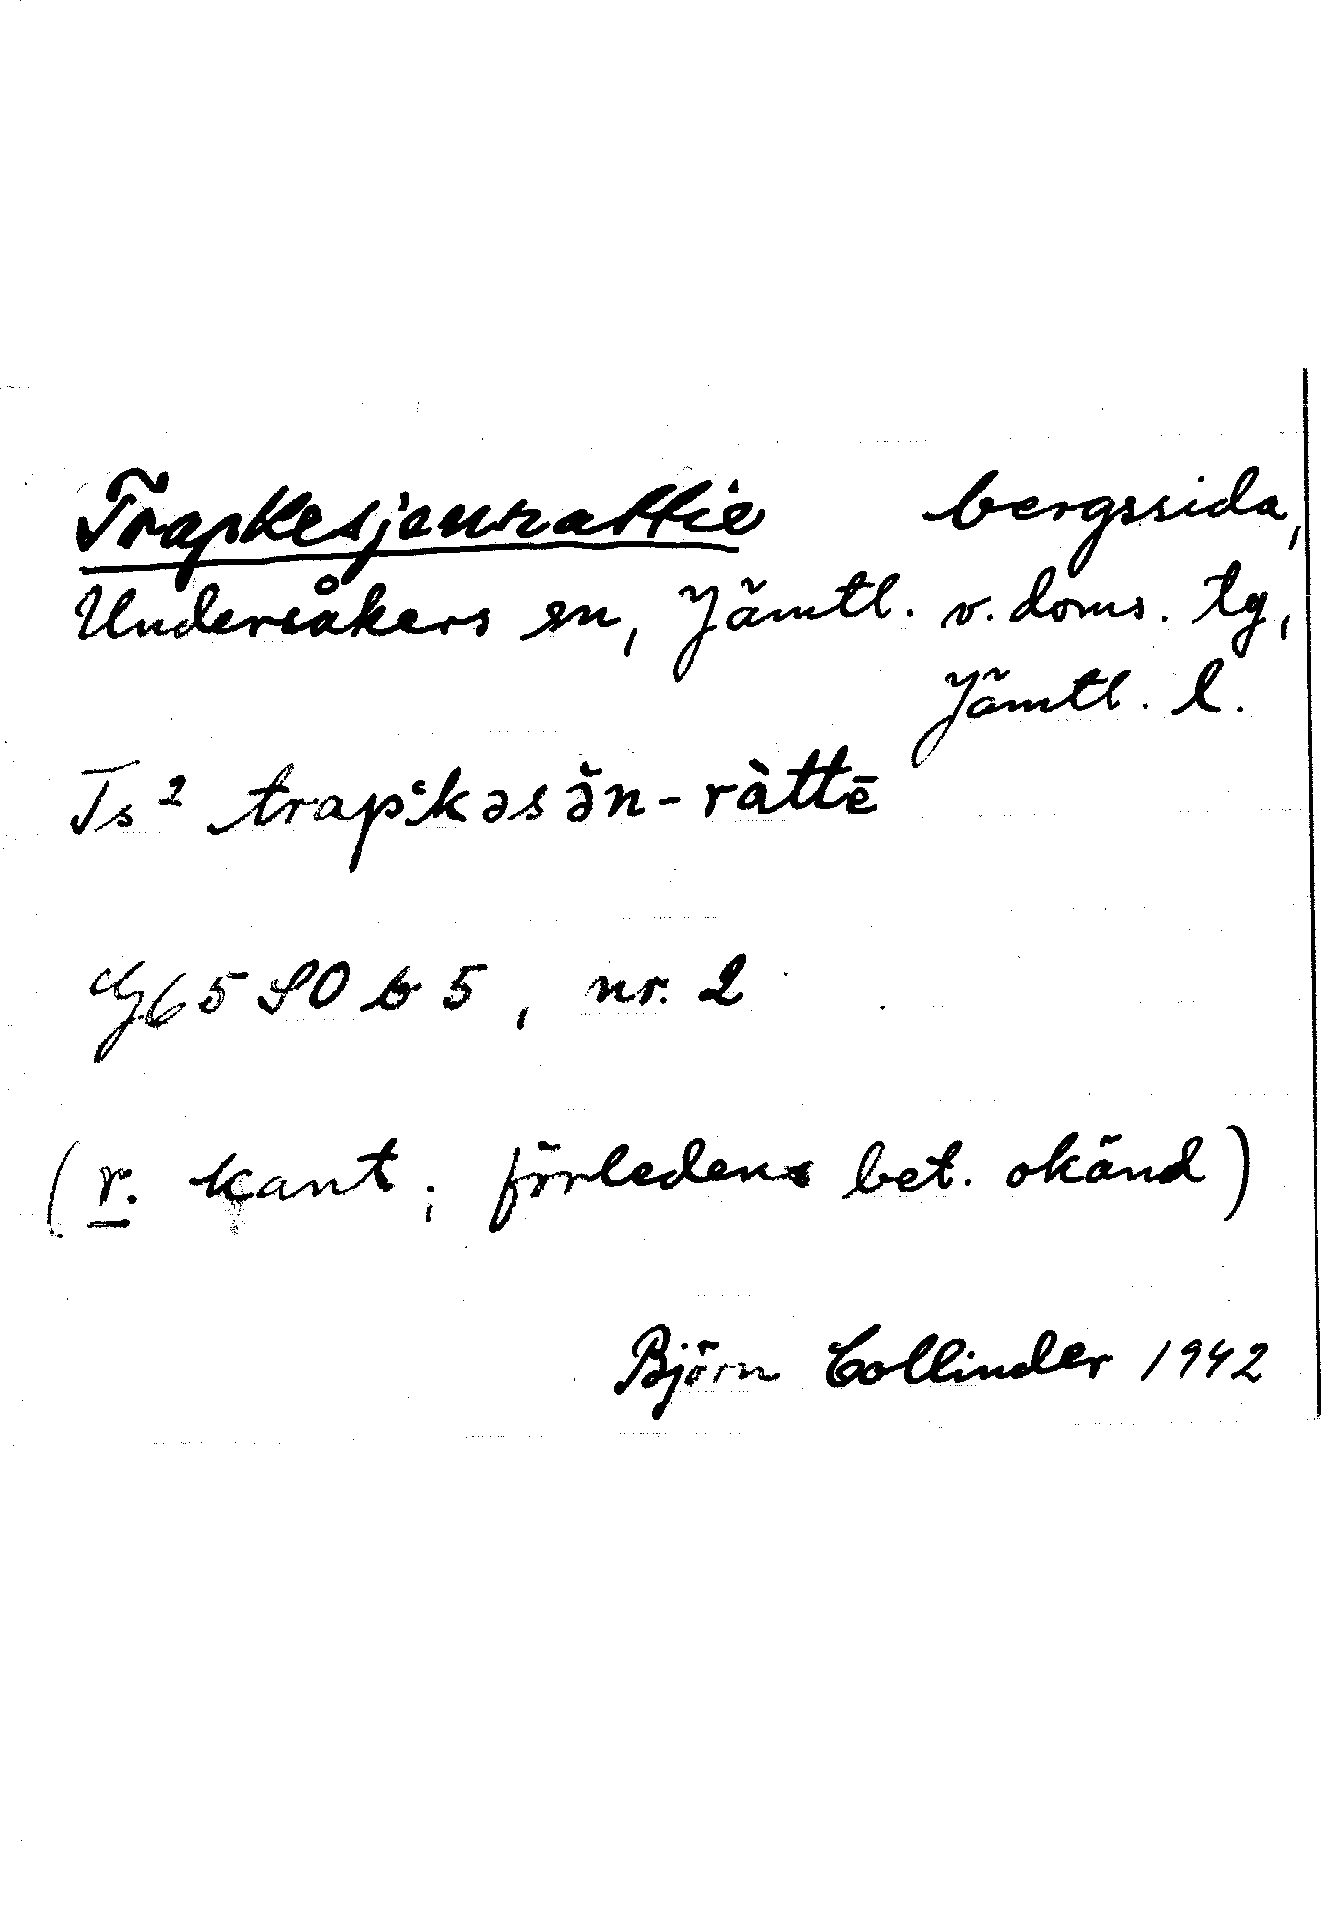 Trapkesjenrattie bergssida,
Undersåkers sn, Jämtl. v. doms. tg,
Jämtl. l.
Ts² trapʿkəsə̆n-ràttē
G65 SO b 5, nr. 2
(r. kant; förledens bet. okänd)
Björn Collinder 1942